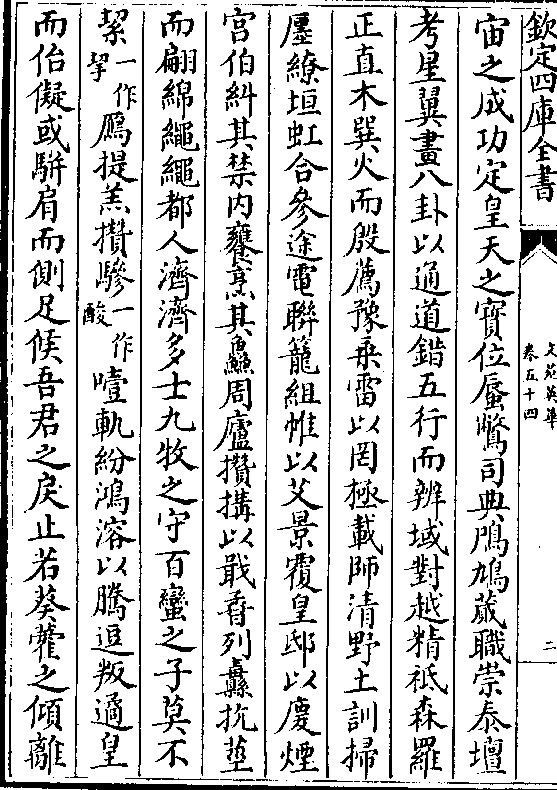 欽定四庫全書
文苑英華
卷五十四
二
宙之成功定皇天之寳位蜃𪇆司典鳲鳩蕆職崇泰壇
考星翼畫八卦以通道錯五行而辨域對越精祗森羅
正直木巽火而殷薦豫乗雷以罔極載師清野土訓掃
㕓繚垣虹合參途電聯籠組帷以艾景覆皇邸以慶煙
宫伯糾其禁内饔烹其鱻周廬攢搆以戢孴列纛抗莖
而翩綿繩繩都人濟濟多士九牧之守百蠻之子莫不
絜一作挈鴈提羔攢驂一作酸噎軌紛鴻溶以騰逗叛譎皇
而佁儗或駢肩而側足候吾君之戾止若葵藿之傾離